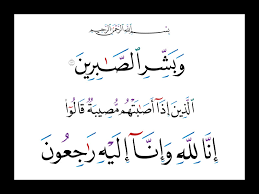 بِسْمِ اللَّهِ الرَّحْمَٰنِ الرَّحِيمِ
وَبَشِّرِ ٱلصَّـٰبِرِينَ
ٱلَّذِينَ إِذَآ أَصَـٰبَتْهُم مُّصِيبَةٌ قَالُوٓا۟
إِنَّا لِلَّهِ وَإِنَّآ إِلَيْهِ رَٰجِعُونَ